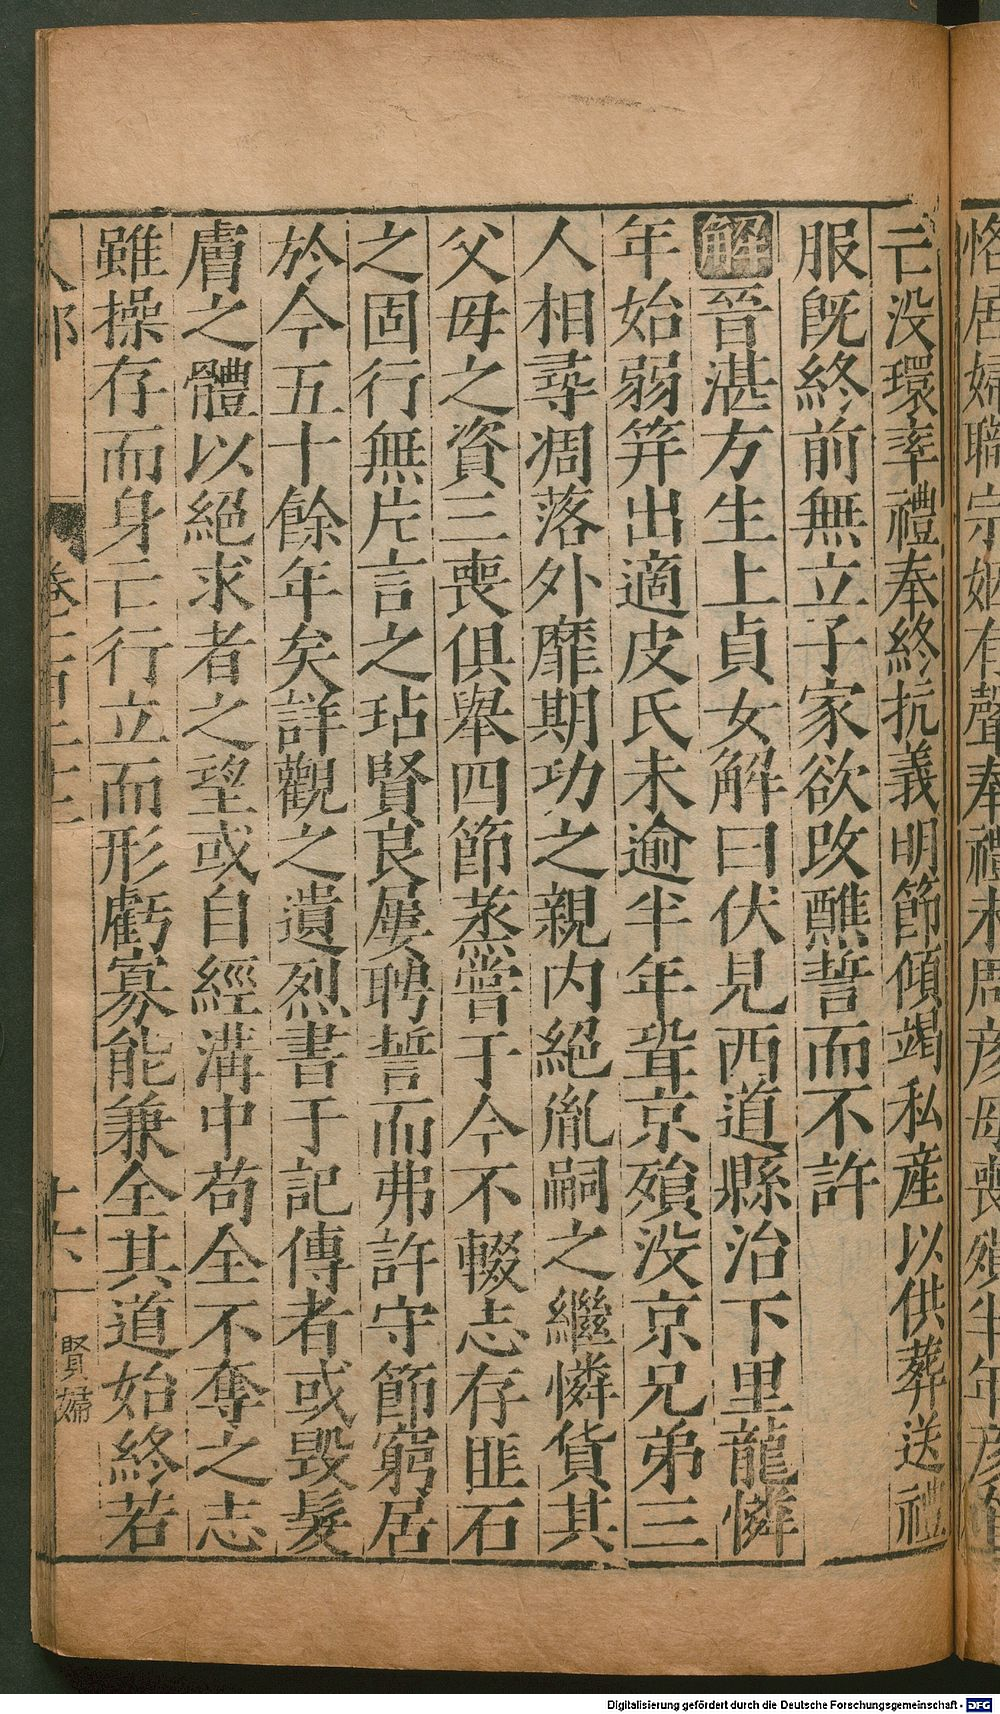 恪居婦職宗姻有聲奉禮未周彥母喪殯半年彥
亡没環率禮奉終抗義明節傾竭私産以供葬送禮
服旣終前無立子家欲改醮誓而不許
解晉湛方生上貞女解曰伏見西道縣治下里龍憐
年始弱笄出適皮氏未逾半年聟京殞没京兄弟三
人相尋凋落外靡期功之親内絕胤嗣之繼憐貨其
父母之資三喪俱舉四節蒸嘗于今不輟志存匪石
之固行無片言之玷賢良屢聘誓而弗許守節窮居
於今五十餘年矣詳觀之遺烈書于記傳者或毁髮
膚之體以絕求者之望或自經溝中苟全不奪之志
雖操存而身亡行立而形虧寡能兼全其道始終若
人部
卷二百七十三
十六
賢婦
Digitalisierung gefördert durch die Deutsche Forschungsgemeinschaft - DFG